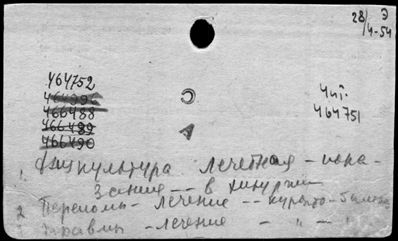 28/ Э
/4-54
464752
466488
466489
466490
Чит.
464751
С
А
1. Физкультура лечебная - пока-
зания -- в хирургии
2 Переломы - лечение --
3 Травмы - лечение - " - "